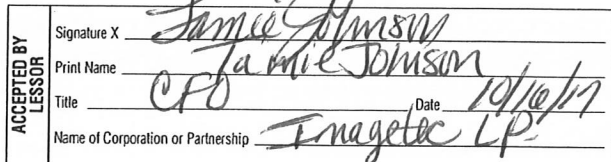 ACCEPTED BY LESSOR
Signature X Jamie Johnson
Print Name Jamie Johnson
Title CFO Date 10/16/17
Name of Corporation or Partnership Imagetec LP